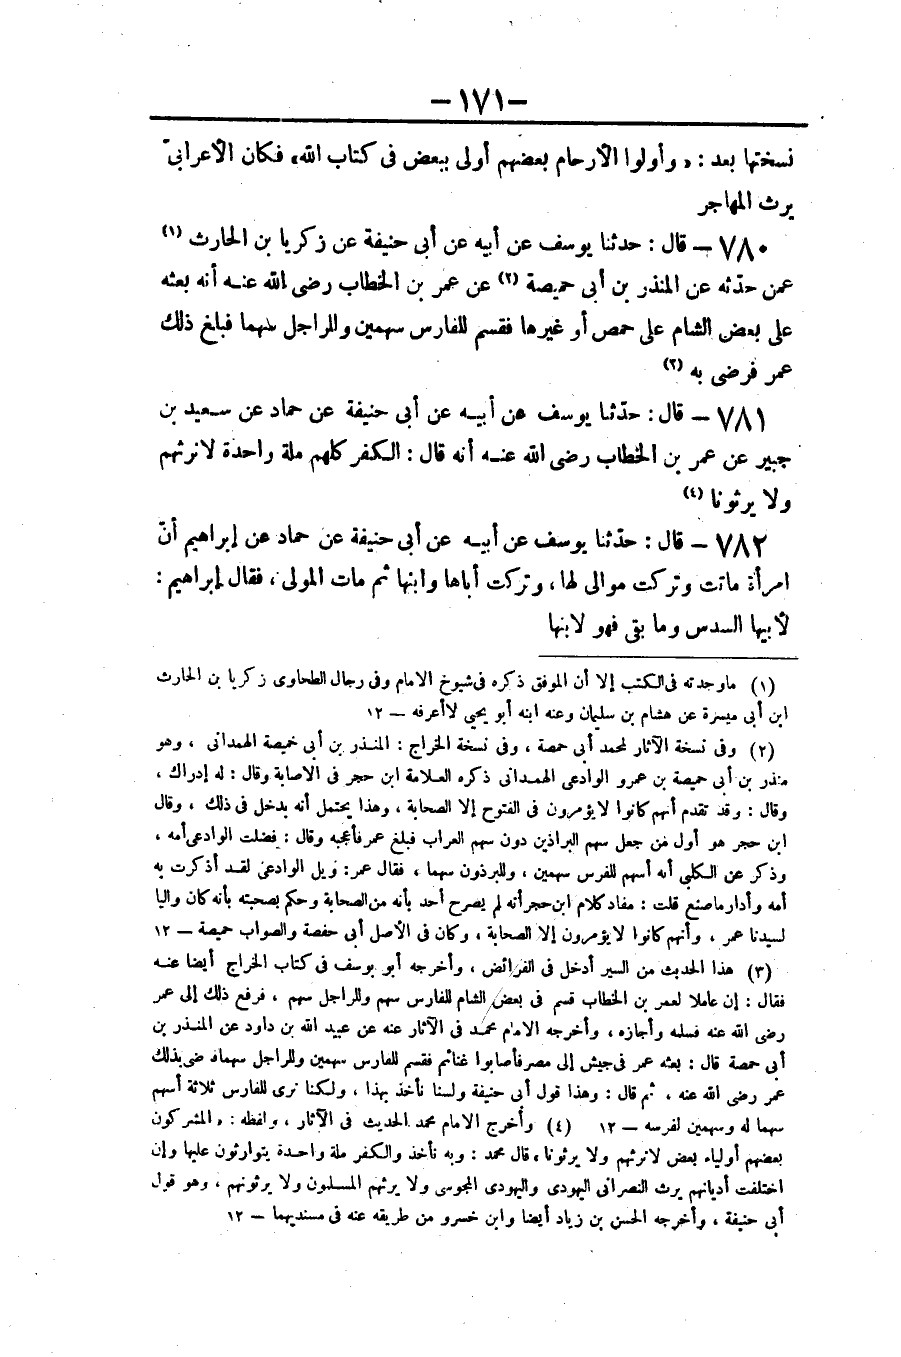 — ١٧١ —
نسختها بعد : « وأولوا الأرحام بعضهم أولى ببعض فى كتاب الله » فكان الأعرابى
يرث المهاجر
٧٨٠ — قال : حدثنا يوسف عن أبيه عن أبى حنيفة عن زكريا بن الحارث (١)
عمن حدّثه عن المنذر بن أبى حميصة (٢) عن عمر بن الخطاب رضى الله عنه أنه بعثه
على بعض الشام على حمص أو غيرها فقسم للفارس سهمين وللراجل سهما فبلغ ذلك
عمر فرضى به (٣)
٧٨١ — قال : حدّثنا يوسف عن أبيه عن أبى حنيفة عن حماد عن سعيد بن
جبير عن عمر بن الخطاب رضى الله عنه أنه قال : الكفر كلهم ملة واحدة لا نرثهم
ولا يرثونا (٤)
٧٨٢ — قال : حدّثنا يوسف عن أبيه عن أبى حنيفة عن حماد عن إبراهيم أنّ
امرأة ماتت وتركت موالى لها ، وتركت أباها وابنها ثم مات المولى ، فقال إبراهيم :
لأبيها السدس وما بقى فهو لابنها
(١) ماوجدته فى الكتب إلا أن الموفق ذكره فى شيوخ الامام وفى رجال الطحاوى زكريا بن الحارث
ابن أبى ميسرة عن هشام بن سليمان وعنه ابنه أبو يحيى لا أعرفه — ١٢
(٢) وفى نسخة الآثار لمحمد أبى حمصة ، وفى نسخة الخراج : المنذر بن أبى خميصة الهمدانى ، وهو
منذر بن أبى حميصة بن عمرو الوادعى الهمدانى ذكره العلامة ابن حجر فى الاصابة وقال : له إدراك ،
وقال : وقد تقدم أنهم كانوا لا يؤمرون فى الفتوح إلا الصحابة ، وهذا يحتمل أنه يدخل فى ذلك ، وقال
ابن حجر هو أول من جعل سهم البراذين دون سهم العراب فبلغ عمر فأعجبه وقال : فضلت الوادعى أمه ،
وذكر عن الكلبى أنه أسهم للفرس سهمين ، وللبرذون سهما ، فقال عمر : ويل الوادعى لقد أذكرت به
أمه وأدار ماصنع قلت : مفاد كلام ابن حجر أنه لم يصرح أحد بأنه من الصحابة وحكم بصحبته بأنه كان واليا
لسيدنا عمر ، وأنهم كانوا لا يؤمرون إلا الصحابة ، وكان فى الأصل أبى حفصة والصواب حميصة — ١٢
(٣) هذا الحديث من السير أدخل فى الفرائض ، وأخرجه أبو يوسف فى كتاب الخراج أيضا عنه
فقال : إن عاملا لعمر بن الخطاب قسم فى بعض الشام للفارس سهم وللراجل سهم ، فرفع ذلك إلى عمر
رضى الله عنه فسلمه وأجازه ، وأخرجه الامام محمد فى الآثار عنه عن عبيد الله بن داود عن المنذر بن
أبى حمصة قال : بعثه عمر فى جيش إلى مصر فأصابوا غنائم فقسم للفارس سهمين وللراجل سهما فرضى بذلك
عمر رضى الله عنه ، ثم قال : وهذا قول أبى حنيفة ولسنا نأخذ بهذا ، ولكنا نرى للفارس ثلاثة أسهم
سهما له وسهمين لفرسه — ١٢ (٤) وأخرج الامام محمد الحديث فى الآثار ، ولفظه : « المشركون
بعضهم أولياء بعض لا نرثهم ولا يرثونا » قال محمد : وبه نأخذ والكفر ملة واحدة يتوارثون عليها وإن
اختلفت أديانهم يرث النصرانى اليهودى واليهودى المجوسى ولا يرثهم المسلمون ولا يرثونهم ، وهو قول
أبى حنيفة ، وأخرجه الحسن بن زياد أيضا وابن خسرو من طريقه عنه فى مسنديهما — ١٢